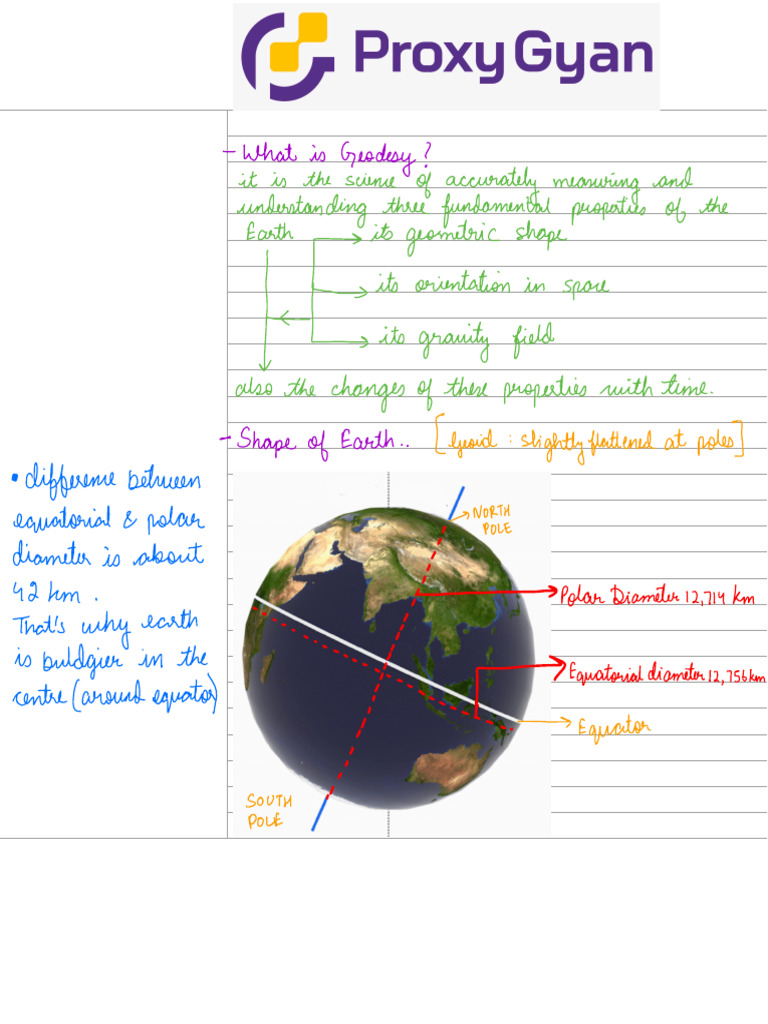 Proxy Gyan
- What is Geodesy?
it is the science of accurately measuring and
understanding three fundamental propaties of the
Earth
its geometric shape
its orientation in space
its gravity field
also the changes of these properties with time.
- Shape of Earth.. [Geoid : slightly flattened at poles]
• difference between
equatorial & polar
diameter is about
42 km.
That's why earth
is buldgier in the
centre (around equator)
NORTH
POLE
Polar Diameter 12,714 km
Equatorial diameter 12,756 km
Equator
SOUTH
POLE